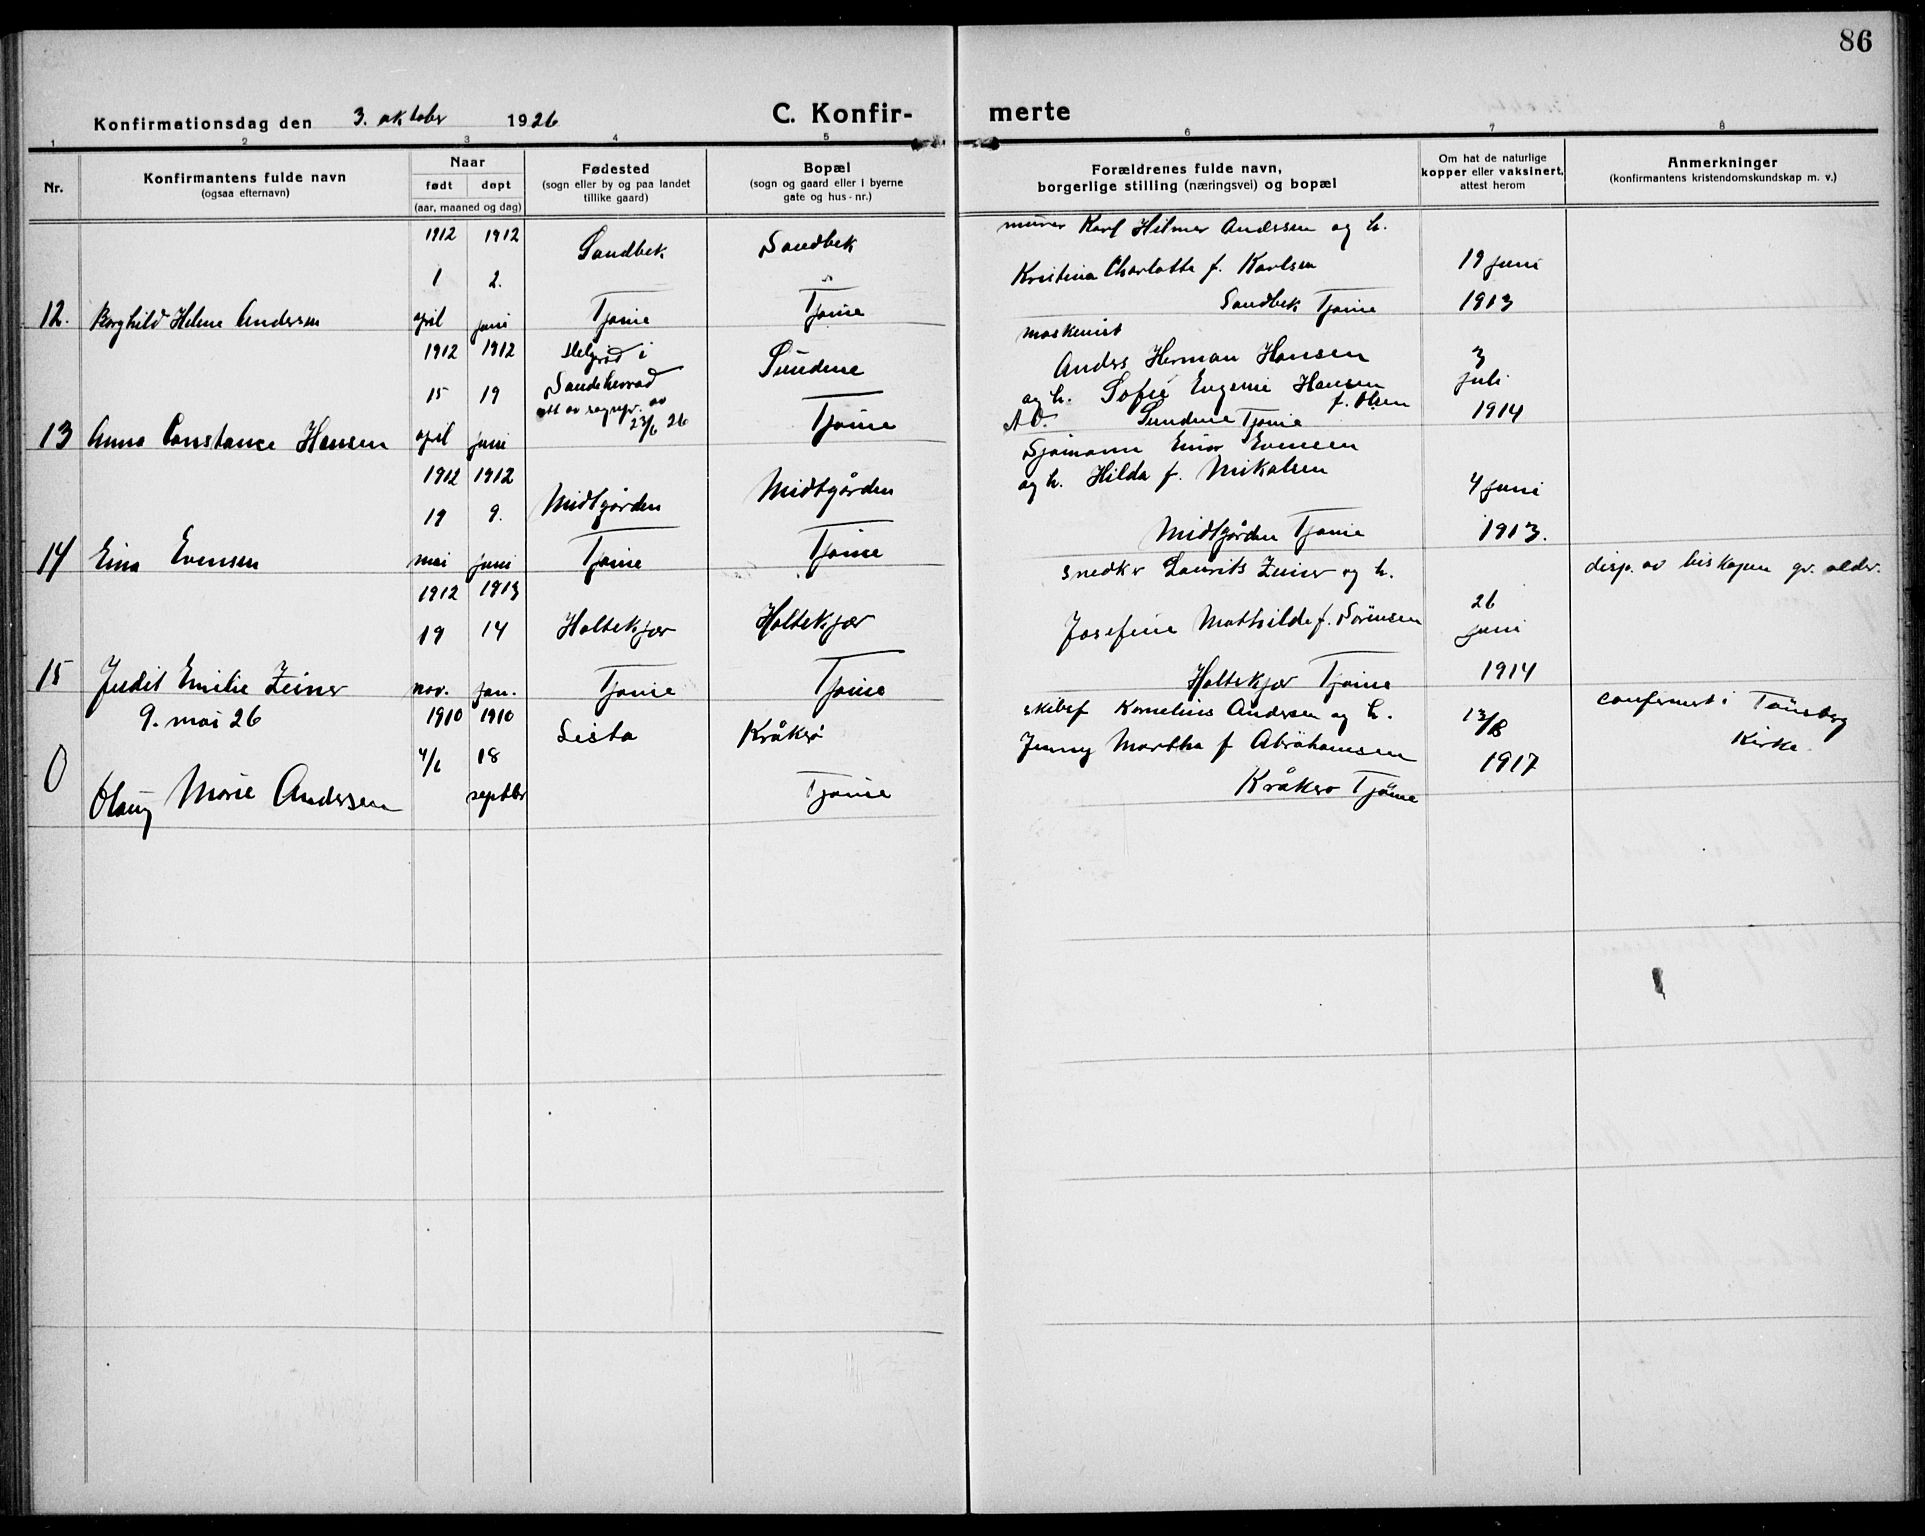 86
Konfirmationsdag den 3. oktober 1926
C. Konfir-
merte
1 2 3 4 5 6 7 8
Nr.
Konfirmantens fulde navn
(ogsaa efternavn)
Naar
født døpt
(aar, maaned og dag)
Fødested
(sogn eller by og paa landet
tillike gaard)
Bopæl
(sogn og gaard eller i byerne
gate og hus-nr.)
Forældrenes fulde navn,
borgerlige stilling (næringsvei) og bopæl
Om hat de naturlige
kopper eller vaksinert,
attest herom
Anmerkninger
(konfirmantens kristendomskundskap m. v.)
12. Borghild Helene Andersen
1912 1912
1 2.
april juni
Sandbek
Tjøme
Sandbek
Tjøme
murer Karl Hilmer Andersen og h.
Kristina Charlotte f. Karlsen
Sandbek Tjøme
19 juni
1913
13 Anna Constance Hansen
1912 1912
15 19
april juni
Helgerød i
Sandeherred
att av sognepr. av
23/6 26
Sundene
Tjøme
maskinist
Anders Herman Hansen
og h. Sofie Eugenie Hansen
f. Olsen
Sundene Tjøme
3
juli
1914
14 Eina Evensen
1912 1912
19 9.
mai juni
Midtgården
Tjøme
Midtgården
Tjøme
Sjømann Einar Evensen
og h. Hilda f. Mikalsen
Midtgården Tjøme
4 juni
1913.
15 Judit Emilie Zeiner
1912 1913
19 14
nov. jan.
Holtekjær
Tjøme
Holtekjær
Tjøme
snedker Laurits Zeiner og h.
Josefine Mathilde f. Sørensen
Holtekjær Tjøme
26
juni
1914
disp. av biskopen gr. alder.
9. mai 26
0 Olaug Marie Andersen
1910 1910
4/6 18
septbr
Lista
Kråkerö
Tjøme
skibsf Kornelius Andersen og h.
Jenny Martha f Abrahamsen
Kråkerö Tjöme
13/8
1917
confirmert i Tönsberg
Kirke.